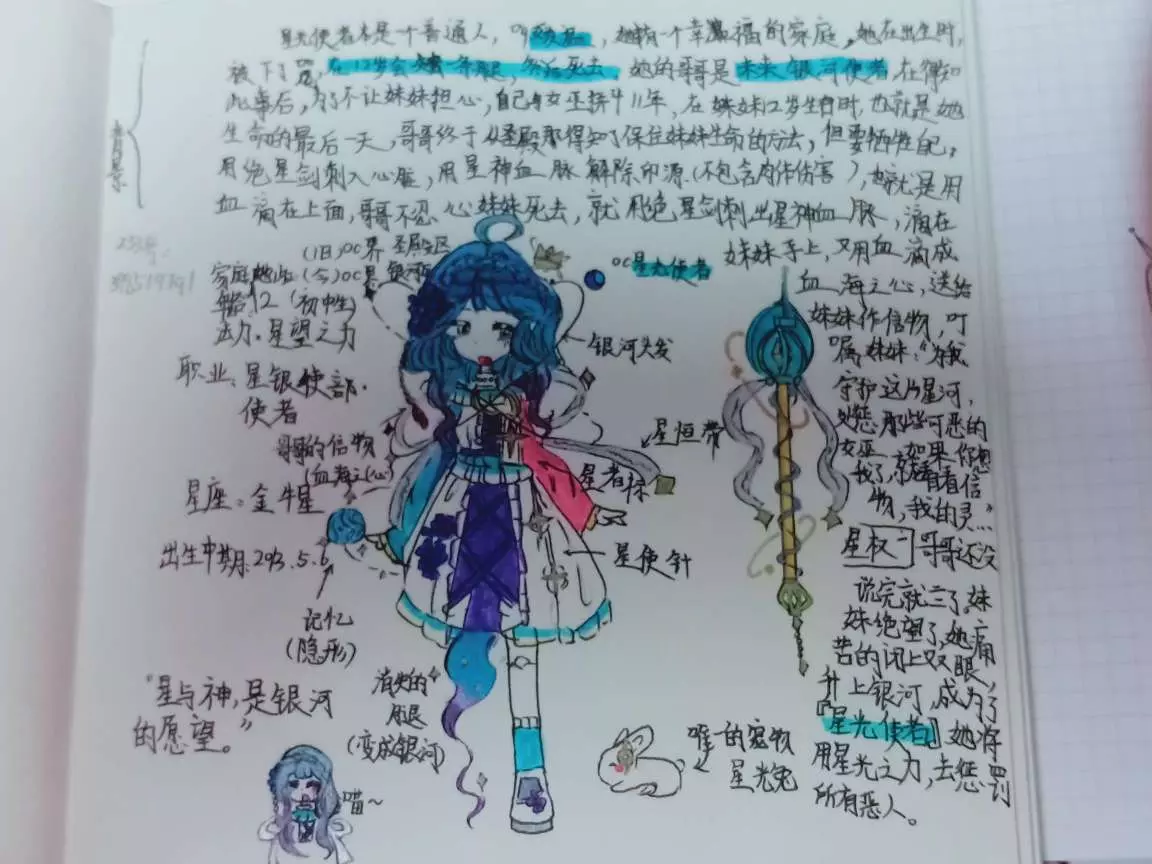 星光使者本是一个普通人，叫，她有一个幸福的家庭，她在出生时，
被下了咒，在12岁会独一条腿，然后死去，她的哥哥是未来银河使者，在得知
此事后，为了不让妹妹担心，自己与女巫拼斗11年，在妹妹12岁生日时，也就是她
生命的最后一天，哥哥终于从圣殿那得知了保住妹妹生命的方法，但要牺牲自己，
用绝星剑刺入心脏，用星神血脉解除印源（不包含肉体伤害），也就是用
血滴在上面，哥哥不忍心妹妹死去，就用绝星剑刺出星神血脉，滴在
妹妹手上，又用血滴成
血海之心，送给
妹妹作信物，叮
嘱妹妹："为我
守护这片星河，
惩那些可恶的
女巫，如果你想
我了，就看看信
物，我的灵…"
哥哥还没
说完就亡了。妹
妹绝望了，她痛
苦的闭上双眼，
升上银河，成为了
『星光使者』她将
用星光之力，去惩罚
所有恶人。
背景
(旧)OC界 圣殿区
家庭地址(今)OC界银河
年龄12（初中生）
法力：星望之力
职业：星银使部·
使者
哥哥的信物
(血海之心)
星座：金牛星
出生日期：293.5.6
记忆
(隐形)
"星与神，是银河
的愿望。"
消失的
腿
(变成银河)
喵~
OC星光使者
银河头发
星恒带
星者袜
星使针
星权
唯一的宠物
星光兔